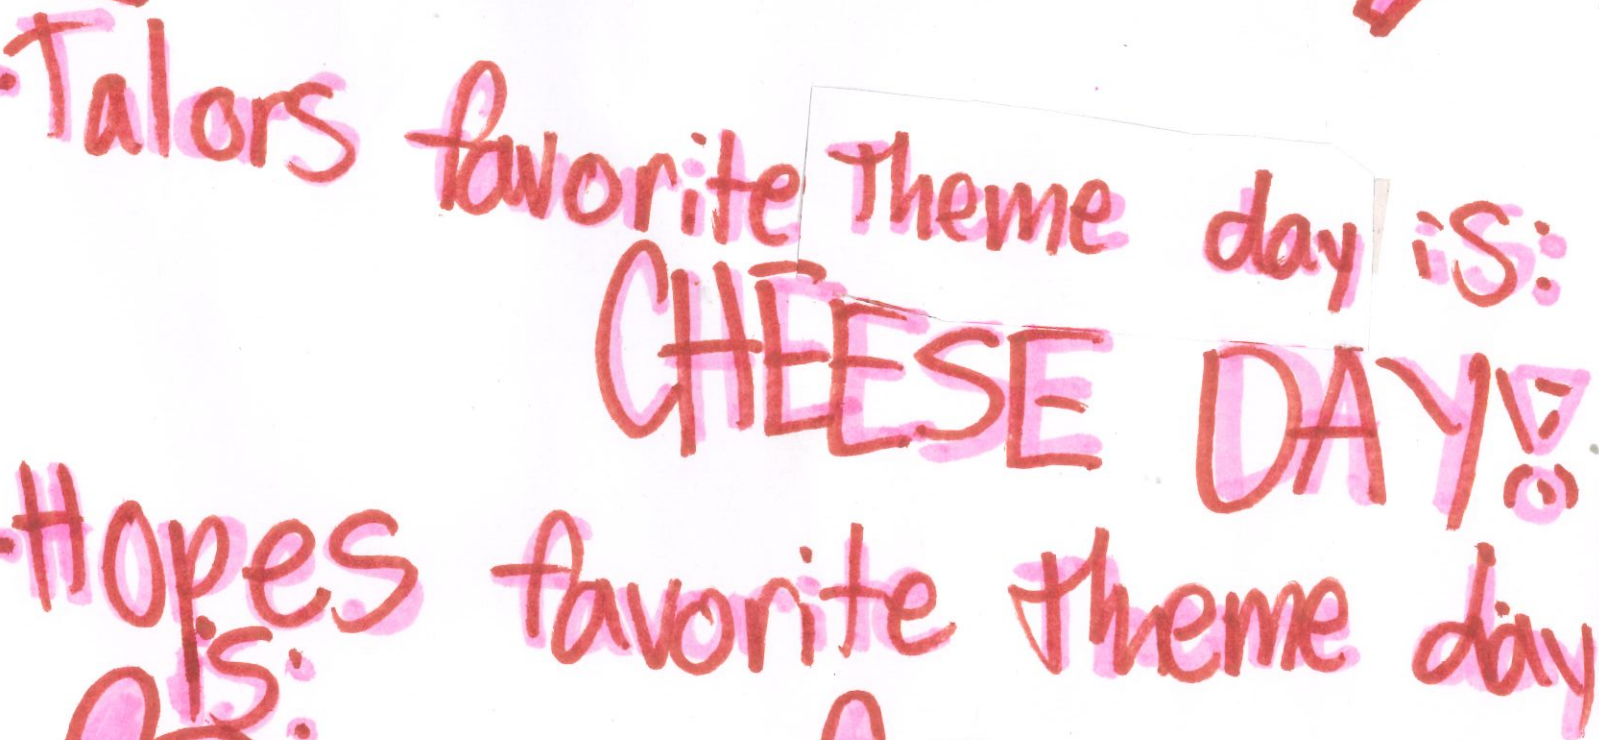 ·Talors favorite Theme day is:
CHEESE DAY!
·Hopes favorite Theme day
is: